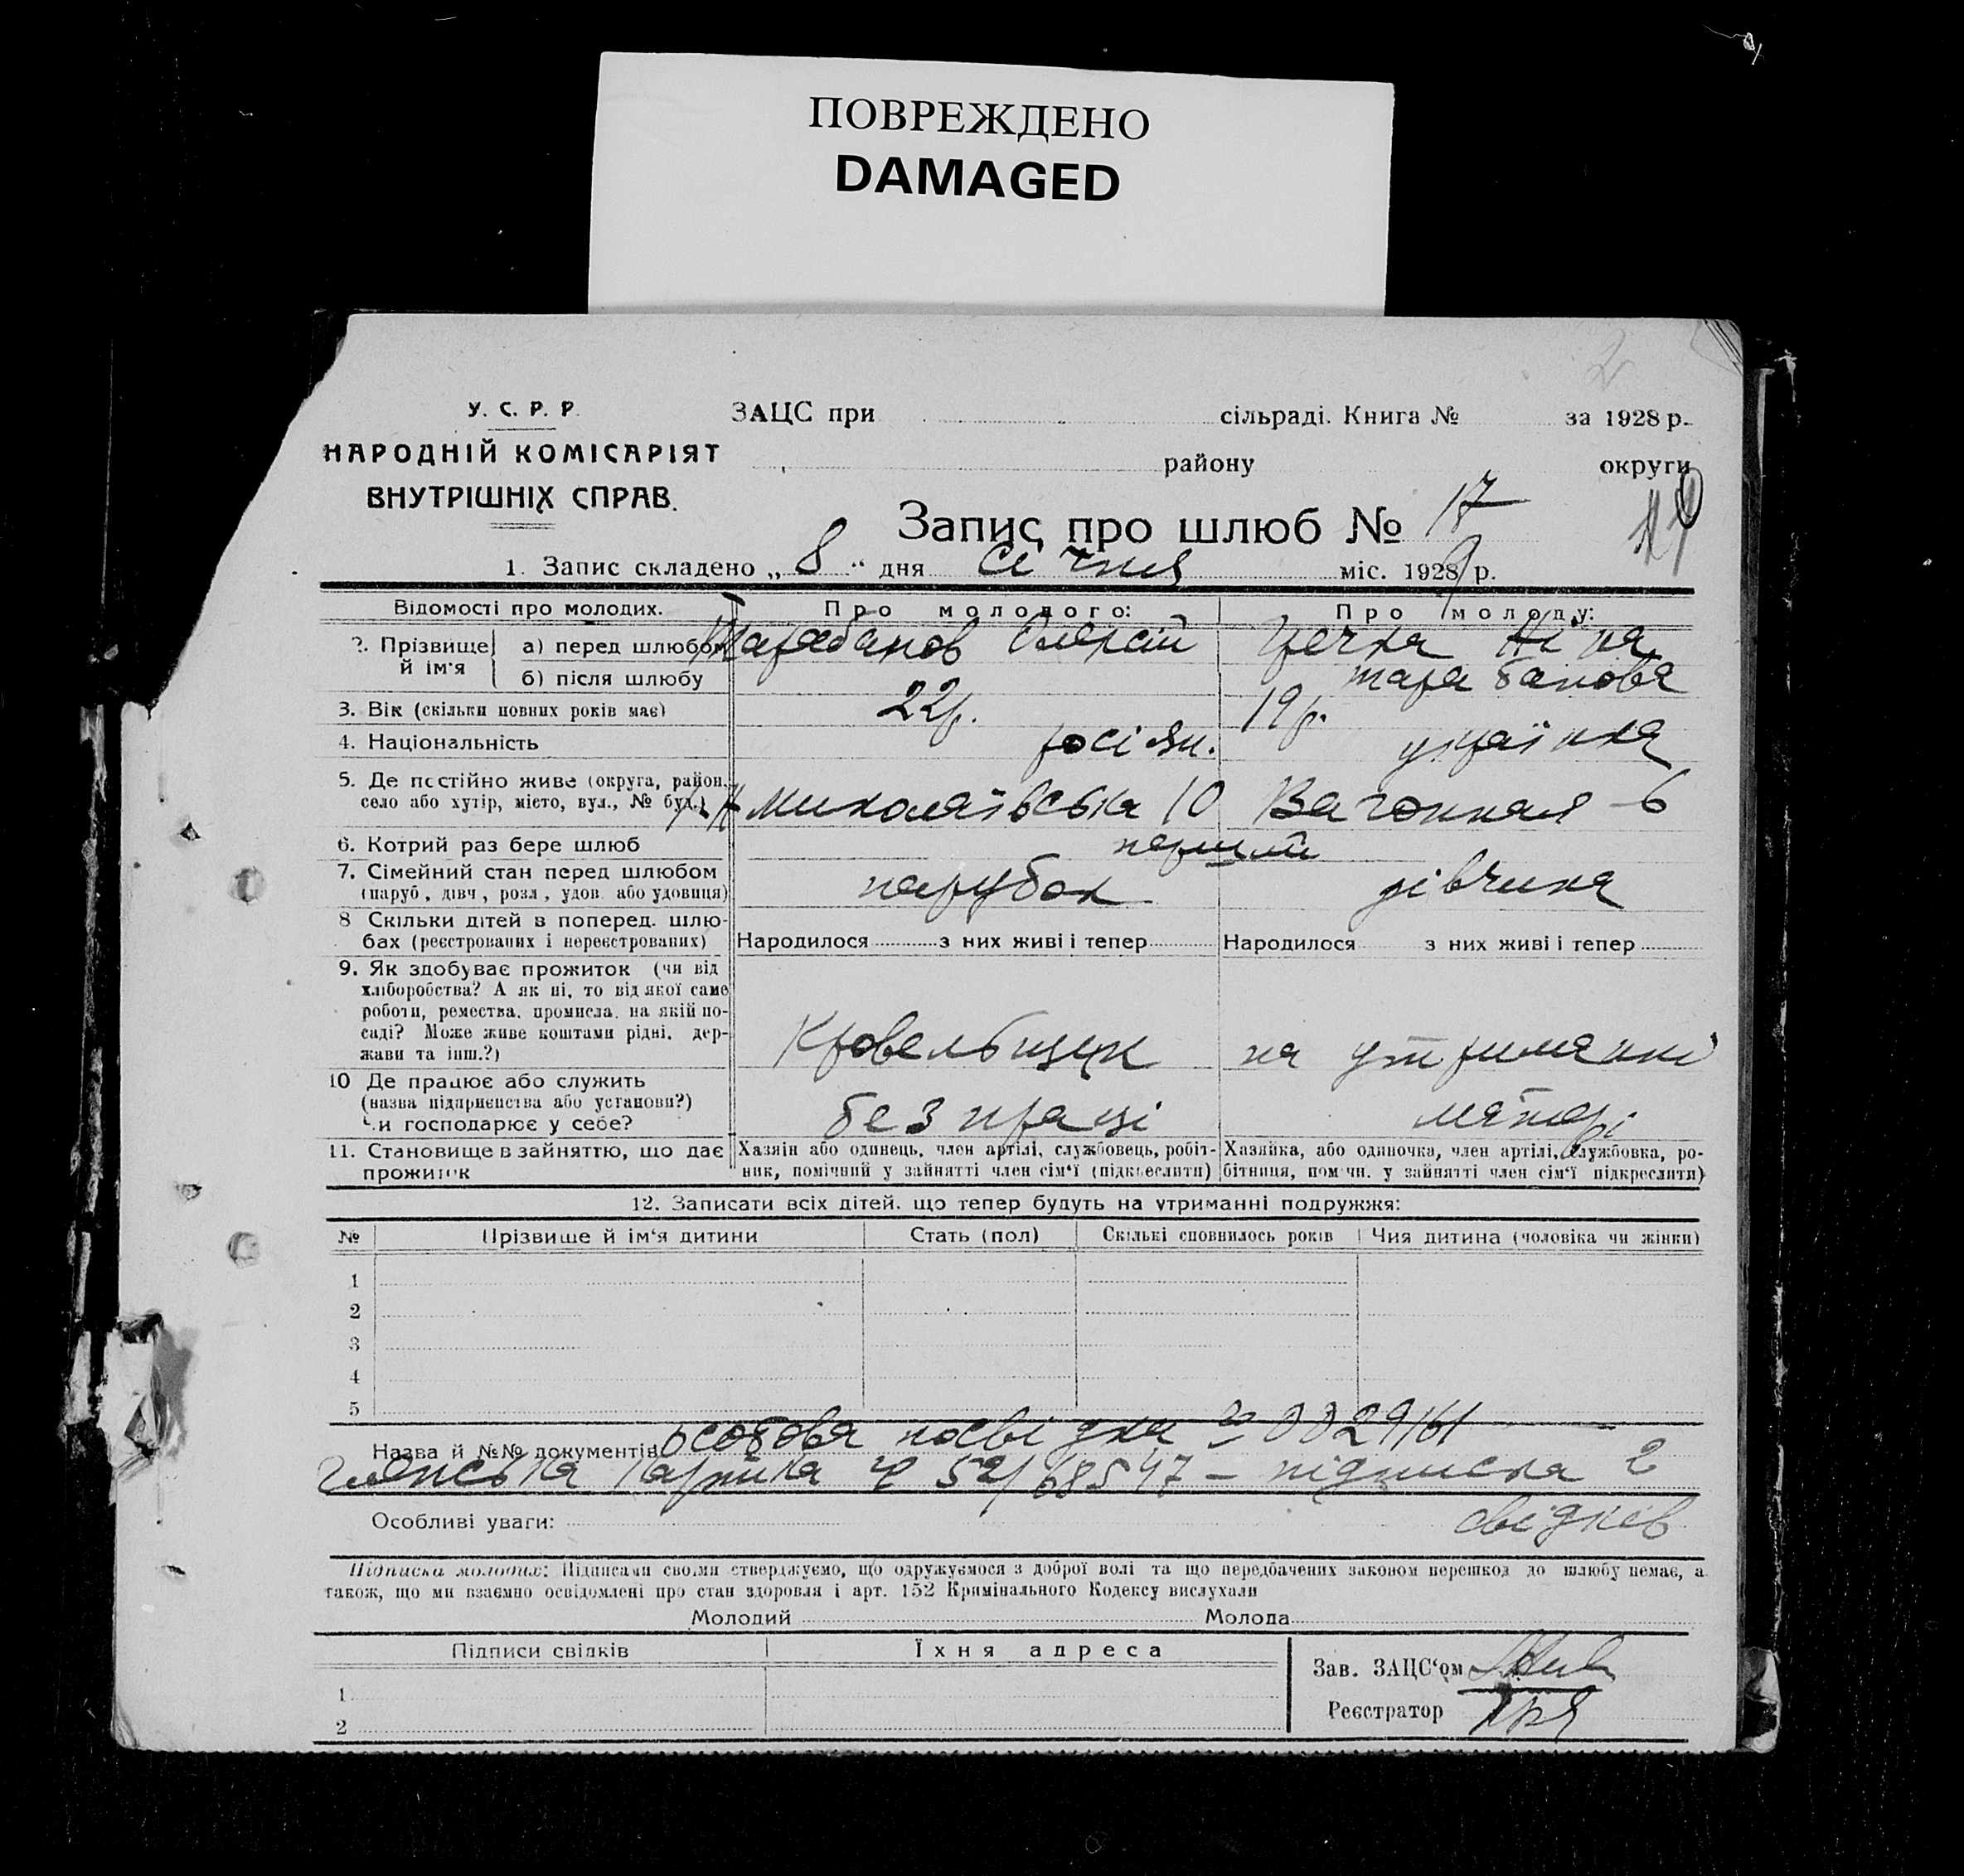 ПОВРЕЖДЕНО
DAMAGED
2
У. С. Р. Р.
НАРОДНІЙ КОМІСАРІЯТ
ВНУТРІШНІХ СПРАВ.
ЗАЦС при сільраді. Книга № за 1928 р.
району округи
Запис про шлюб № 17
1. Запис складено „ 8 “ дня січня міс. 1929 р.
Відомості про молодих. Про молодого: Про молоду:
2. Прізвище й ім'я
а) перед шлюбом Тарабанов Олексій Гречка Ніна
б) після шлюбу Тарабанова
3. Вік (скільки повних років має) 22 р. 19 р.
4. Національність росіян. українка
5. Де постійно живе (округа, район,
село або хутір, місто, вул., № буд.) Миколаївська 10 Вагонная 6
6. Котрий раз бере шлюб перший
7. Сімейний стан перед шлюбом
(паруб., дівч., розл., удов. або удовиця) парубок дівчина
8 Скільки дітей в поперед. шлю-
бах (реєстрованих і нереєстрованих) Народилося з них живі і тепер Народилося з них живі і тепер
9. Як здобуває прожиток (чи від
хліборобства? А як ні, то від якої саме
роботи, ремества, промисла, на якій по-
саді? Може живе коштами рідні, дер-
жави та інш.?) Кровельщик на утриманні
10 Де працює або служить
(назва підприємства або установи?)
Чи господарює у себе? без праці матері
11. Становище в зайняттю, що дає
прожиток
Хазяін або одинець, член артілі, службовець, робіт-
ник, помічний у зайнятті член сім'ї (підкреслити)
Хазяйка, або одиночка, член артілі, службовка, ро-
бітниця, пом чн. у зайнятті член сім'ї підкреслити)
12. Записати всіх дітей, що тепер будуть на утриманні подружжя:
№ Прізвище й ім'я дитини Стать (пол) Скількі сповнилось років Чия дитина (чоловіка чи жінки)
1
2
3
4
5
Назва й №№ документів особова посвідка № 0029/61
членська картка ч 52/68547 – підписка 2
свідків
Особливі уваги:
Підписка молодих: Підписами своїми стверджуємо, що одружуємося з доброї волі та що передбачених законом перешкод до шлюбу немає, а
також, що ми взаємно освідомлені про стан здоровля і арт. 152 Кримінального Кодексу вислухали
Молодий Молода
Підписи свідків Їхня адреса
1
2
Зав. ЗАЦС'ом
Реєстратор